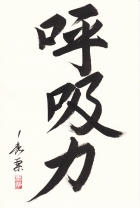 呼吸力